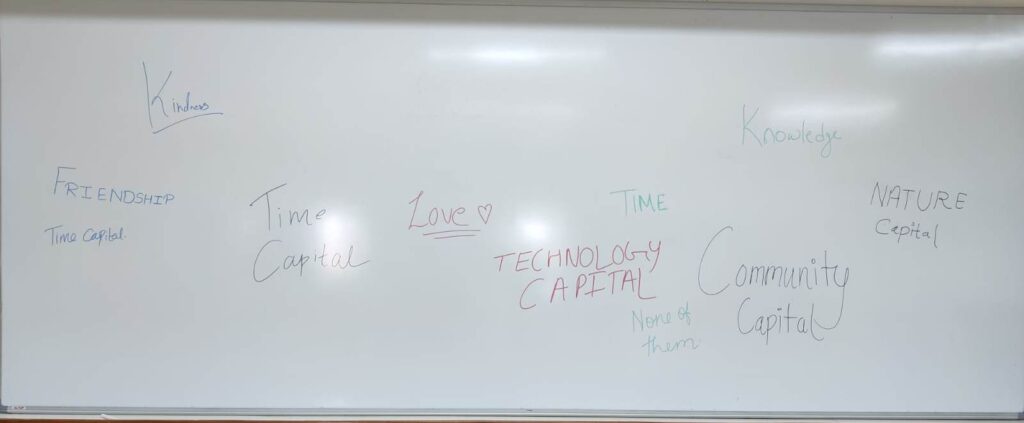 Kindness
Knowledge
FRIENDSHIP
Time Capital
Time
Capital
Love ♡
TIME
NATURE
Capital
TECHNOLOGY
CAPITAL
Community
Capital
None of
them